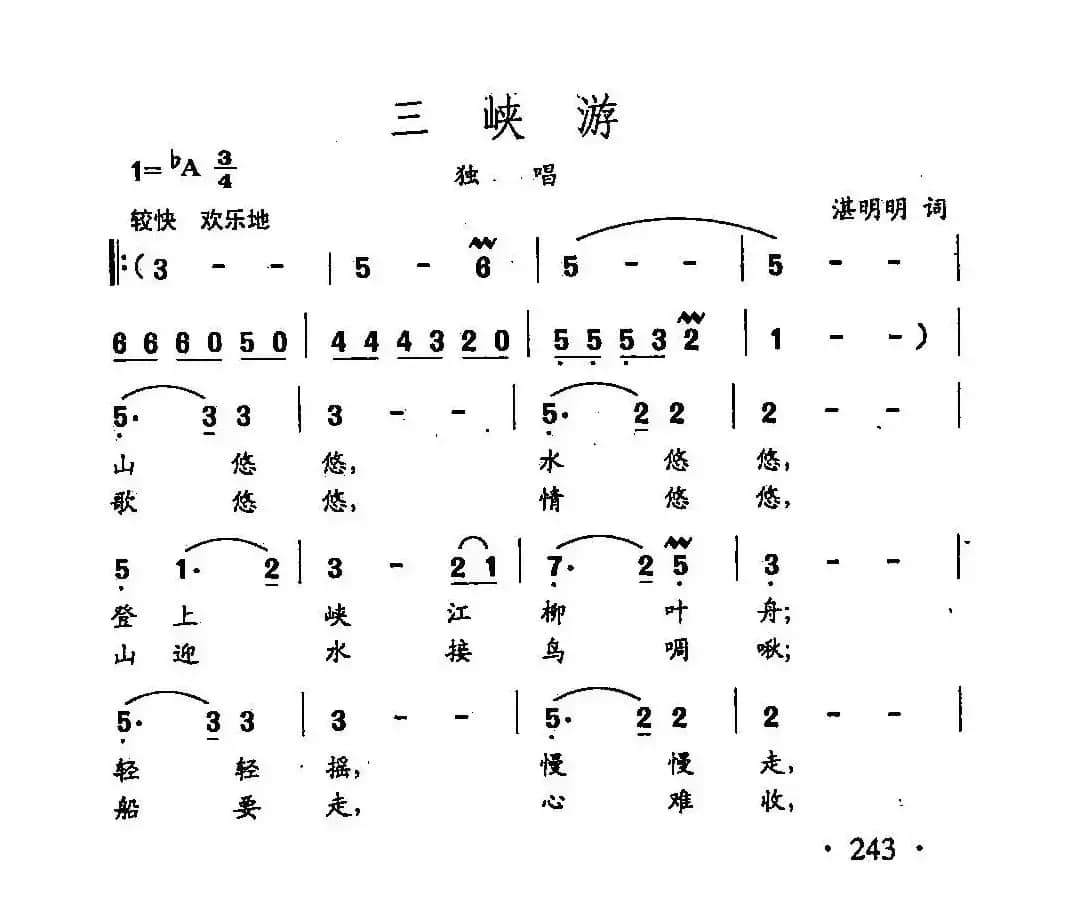 三峡游
1=♭A 3/4
独 唱
较快 欢乐地
湛明明 词
‖:( 3 - - | 5 - 6 | 5 - - | 5 - - |
6 6 6 0 5 0 | 4 4 4 3 2 0 | 5 5 5 3 2 | 1 - - ) |
5· 3 3 | 3 - - | 5· 2 2 | 2 - - |
山 悠 悠, 水 悠 悠,
歌 悠 悠, 情 悠 悠,
5 1· 2 | 3 - 2 1 | 7· 2 5 | 3 - - |
登 上 峡 江 柳 叶 舟;
山 迎 水 接 鸟 啁 啾;
5· 3 3 | 3 - - | 5· 2 2 | 2 - - |
轻 轻 摇, 慢 慢 走,
船 要 走, 心 难 收,
· 243 ·